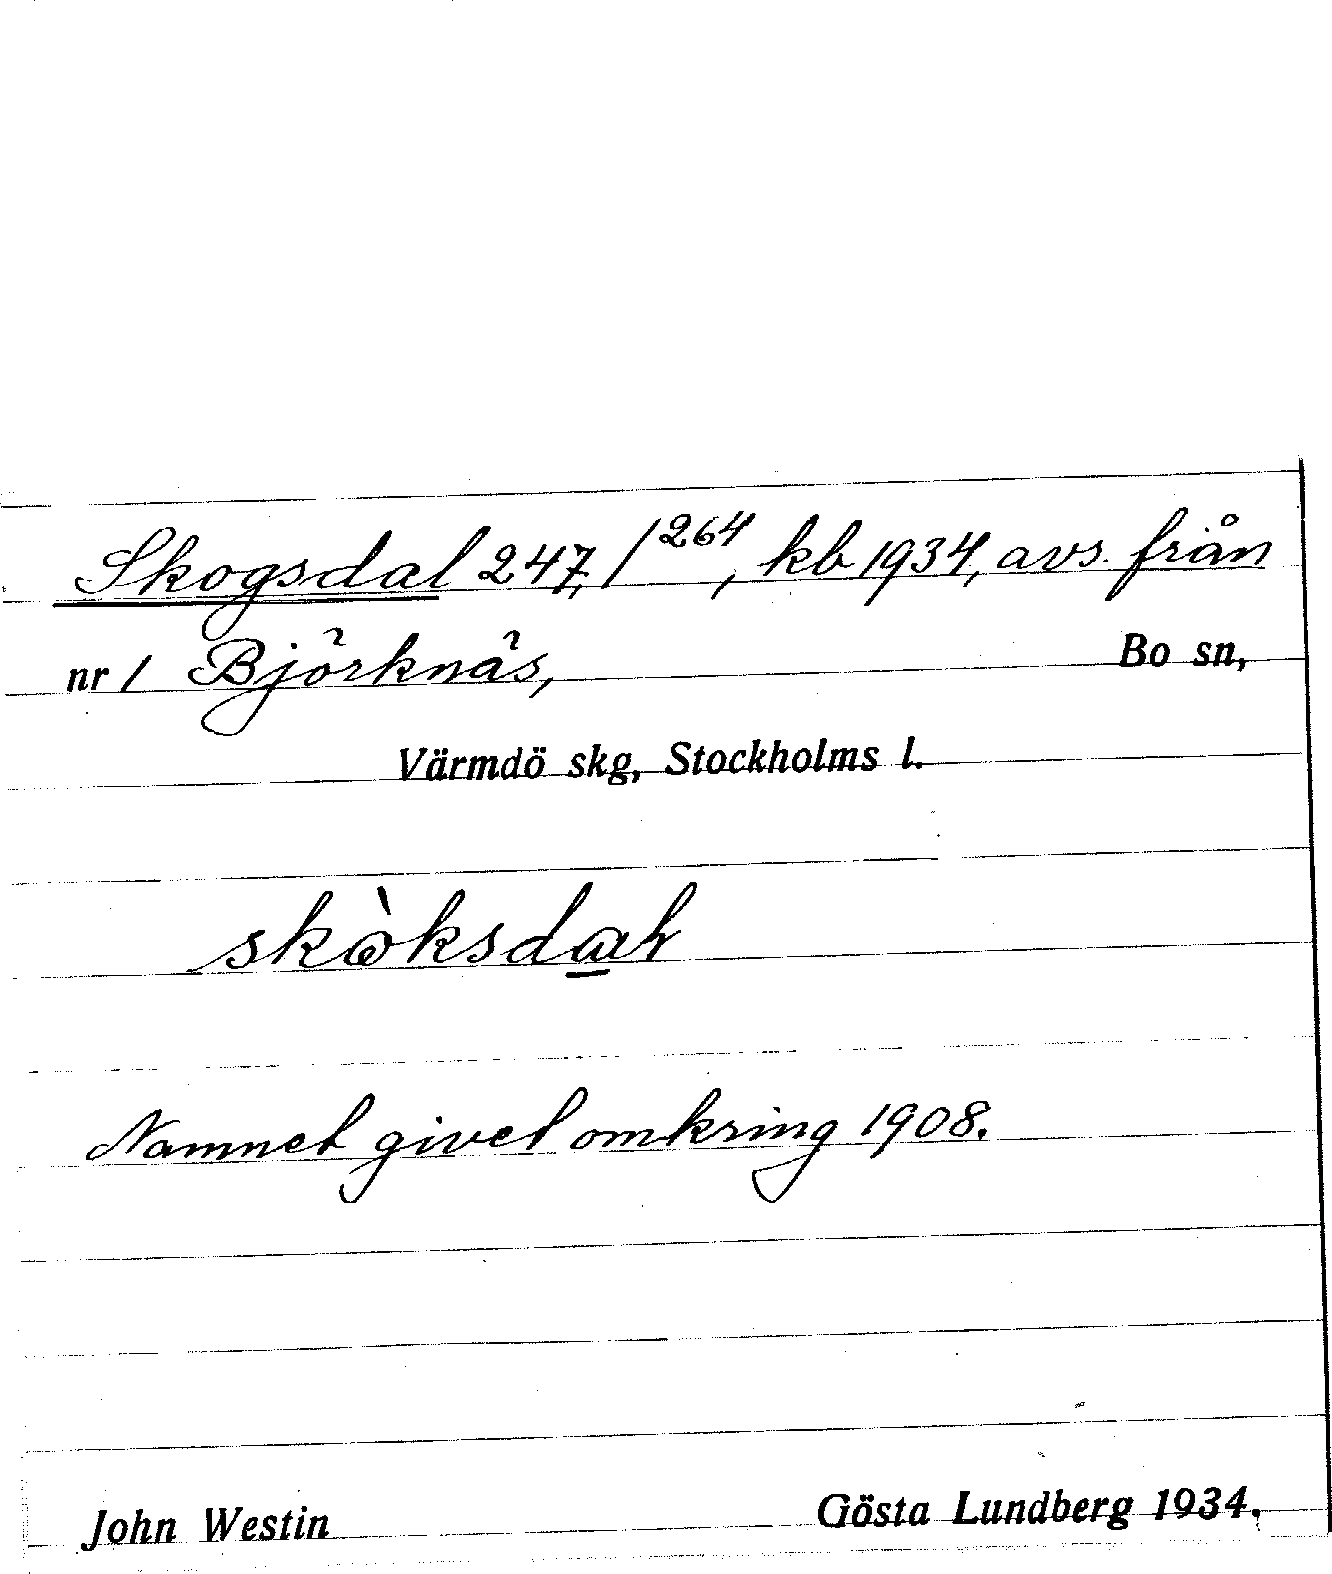 Skogsdal 247, 1²⁶⁴, kb 1934, avs. från
nr 1 Björknäs, Bo sn,
Värmdö skg, Stockholms l.
skòksdal
Namnet givet omkring 1908.
John Westin Gösta Lundberg 1934.